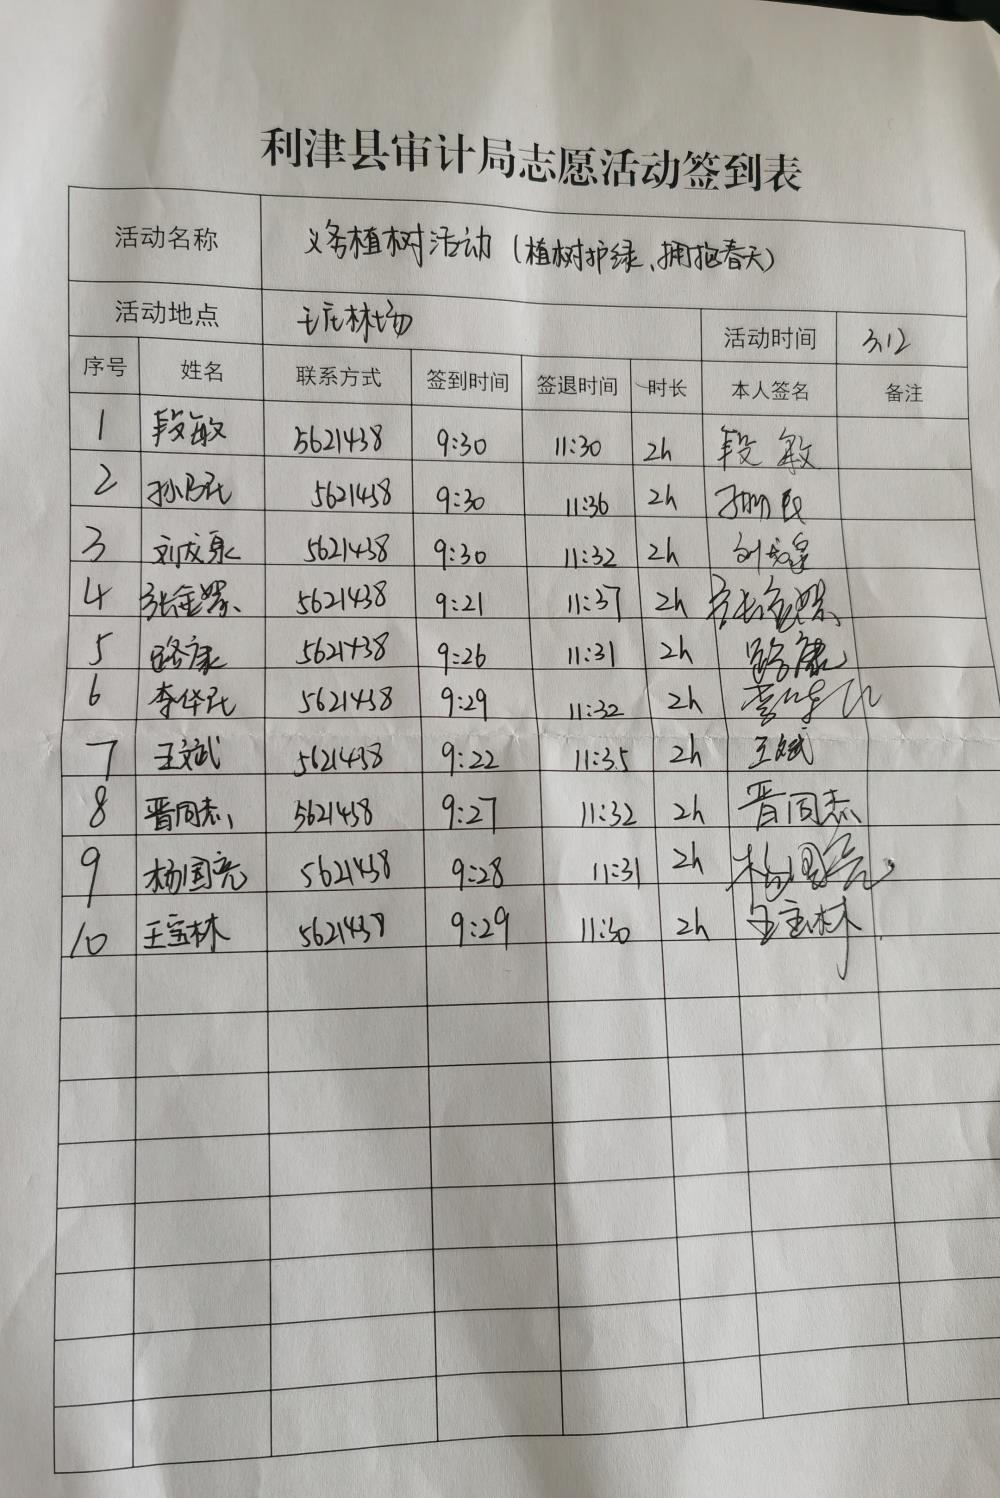 利津县审计局志愿活动签到表
活动名称 义务植树活动（植树护绿、拥抱春天）
活动地点 王庄林场 活动时间 3.12
序号 姓名 联系方式 签到时间 签退时间 时长 本人签名 备注
1 段敏 5621438 9:30 11:30 2h 段敏
2 5621438 9:30 11:36 2h
3 刘成泉 5621438 9:30 11:32 2h 刘成泉
4 5621438 9:21 11:37 2h
5 路康 5621438 9:26 11:31 2h 路康
6 李华民 5621438 9:29 11:32 2h 李华民
7 王斌 5621438 9:22 11:35 2h 王斌
8 晋同杰 5621438 9:27 11:32 2h 晋同杰
9 杨国亮 5621438 9:28 11:31 2h 杨国亮
10 王宝林 5621438 9:29 11:30 2h 王宝林